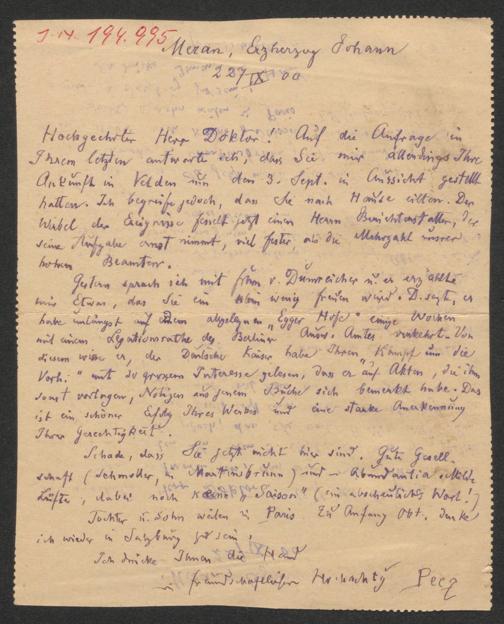 J.N. 194.995
Meran, Erzherzog Johann
22/IX 00
Hochgeehrter Herr Doktor! Auf die Anfrage in
Ihrem letzten antworte ich, dass Sie mir allerdings Ihre
Ankunft in Velden um den 3. Sept. in Aussicht gestellt
hatten. Ich begreife jedoch, dass Sie nach Hause eilten. Der
Wirbel der Ereignisse fesselt jetzt einen Herrn Berichterstatter, der
seine Aufgabe ernst nimmt, viel fester, als die Mehrzahl unsrer
hohen Beamten.
Gestern sprach ich mit v. Dumreicher u. er erzählte
mir Etwas, das Sie ein wenig freuen wird. D. sagt, er
habe unlängst auf dem abgelegnen „Egger Hofe" einige Wochen
mit einem Legationsrathe des Berliner Ausw. Amtes verkehrt. Von
diesem wisse er, der Deutsche Kaiser habe Ihren „Kampf um die
Vorh." mit so grossem Interesse gelesen, dass er auf Akten, die ihm
sonst vorlagen, Notizen aus jenem Buche sich bemerkt habe. Das
ist ein schöner Erfolg Ihres Werkes und eine starke Anerkennung
Ihrer Gerechtigkeit.
Schade, dass Sie jetzt nicht hier sind. Gute Gesell-
schaft (Schmoller, in Martinsbrunn) und Abundantia. Milde
Lüfte, dabei noch keine „Saison" (ein abscheuliches Wort!)
Tochter u. Sohn weilen in Paris. Zu Anfang Okt. denke
ich wieder in Salzburg zu sein.
Ich drücke Ihnen die Hand
in freundschaftlicher Hochachtg